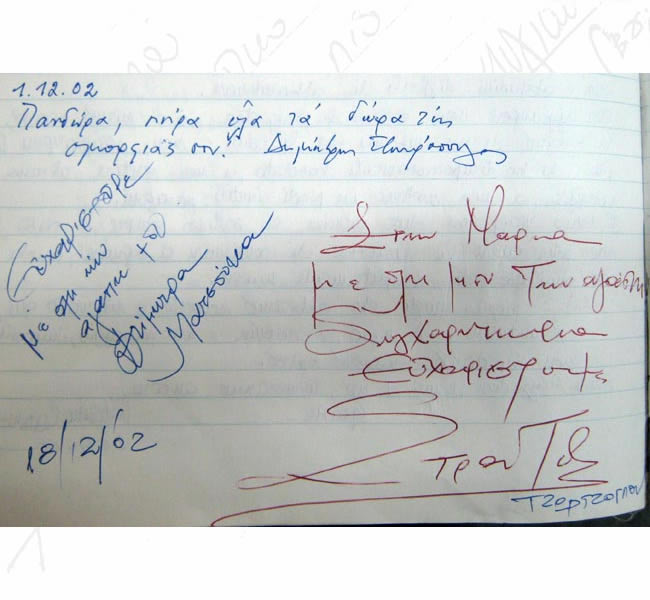 1.12.02
Πανδώρα, πήρα όλα τά δώρα τής
ομορφιάς σου! Δημήτρης
Εύχαριστούμε
με όλη την
αγάπη του
Δήμητρα
Ματσούκα
18/12/02
Στην Μαρία
Με όλη μου την αγάπη
Συγχαρητήρια
Εύχαριστούμε
Στρατος
Τζορτζογλου